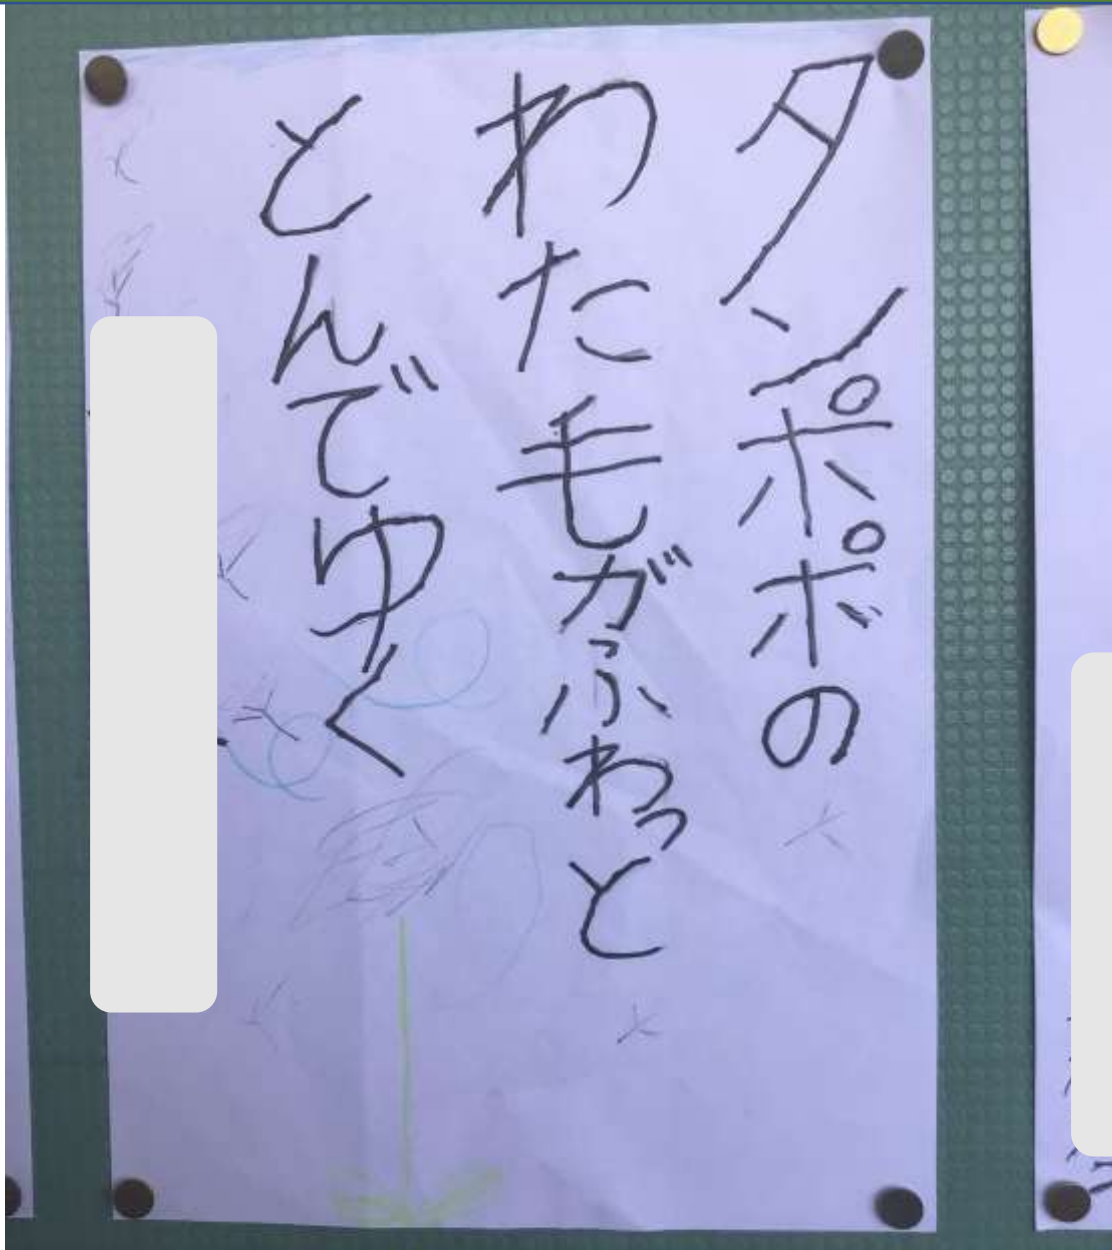 タンポポの
わた毛がふわっと
とんでゆく